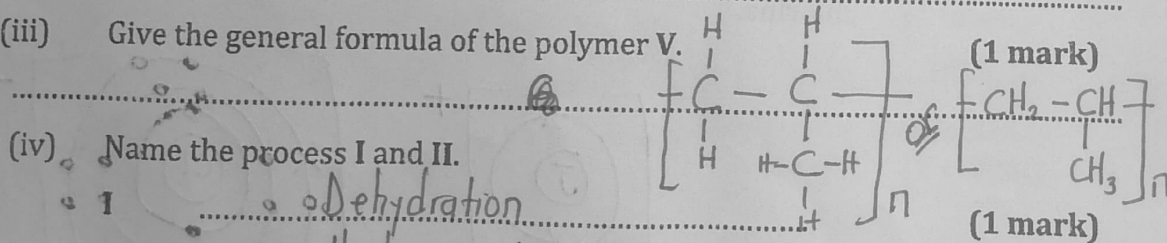 (iii) Give the general formula of the polymer V. (1 mark)
H H
[ C — C ] or [ CH2 - CH ]
H H-C-H CH3
H n n
(iv) Name the process I and II.
I Dehydration
(1 mark)